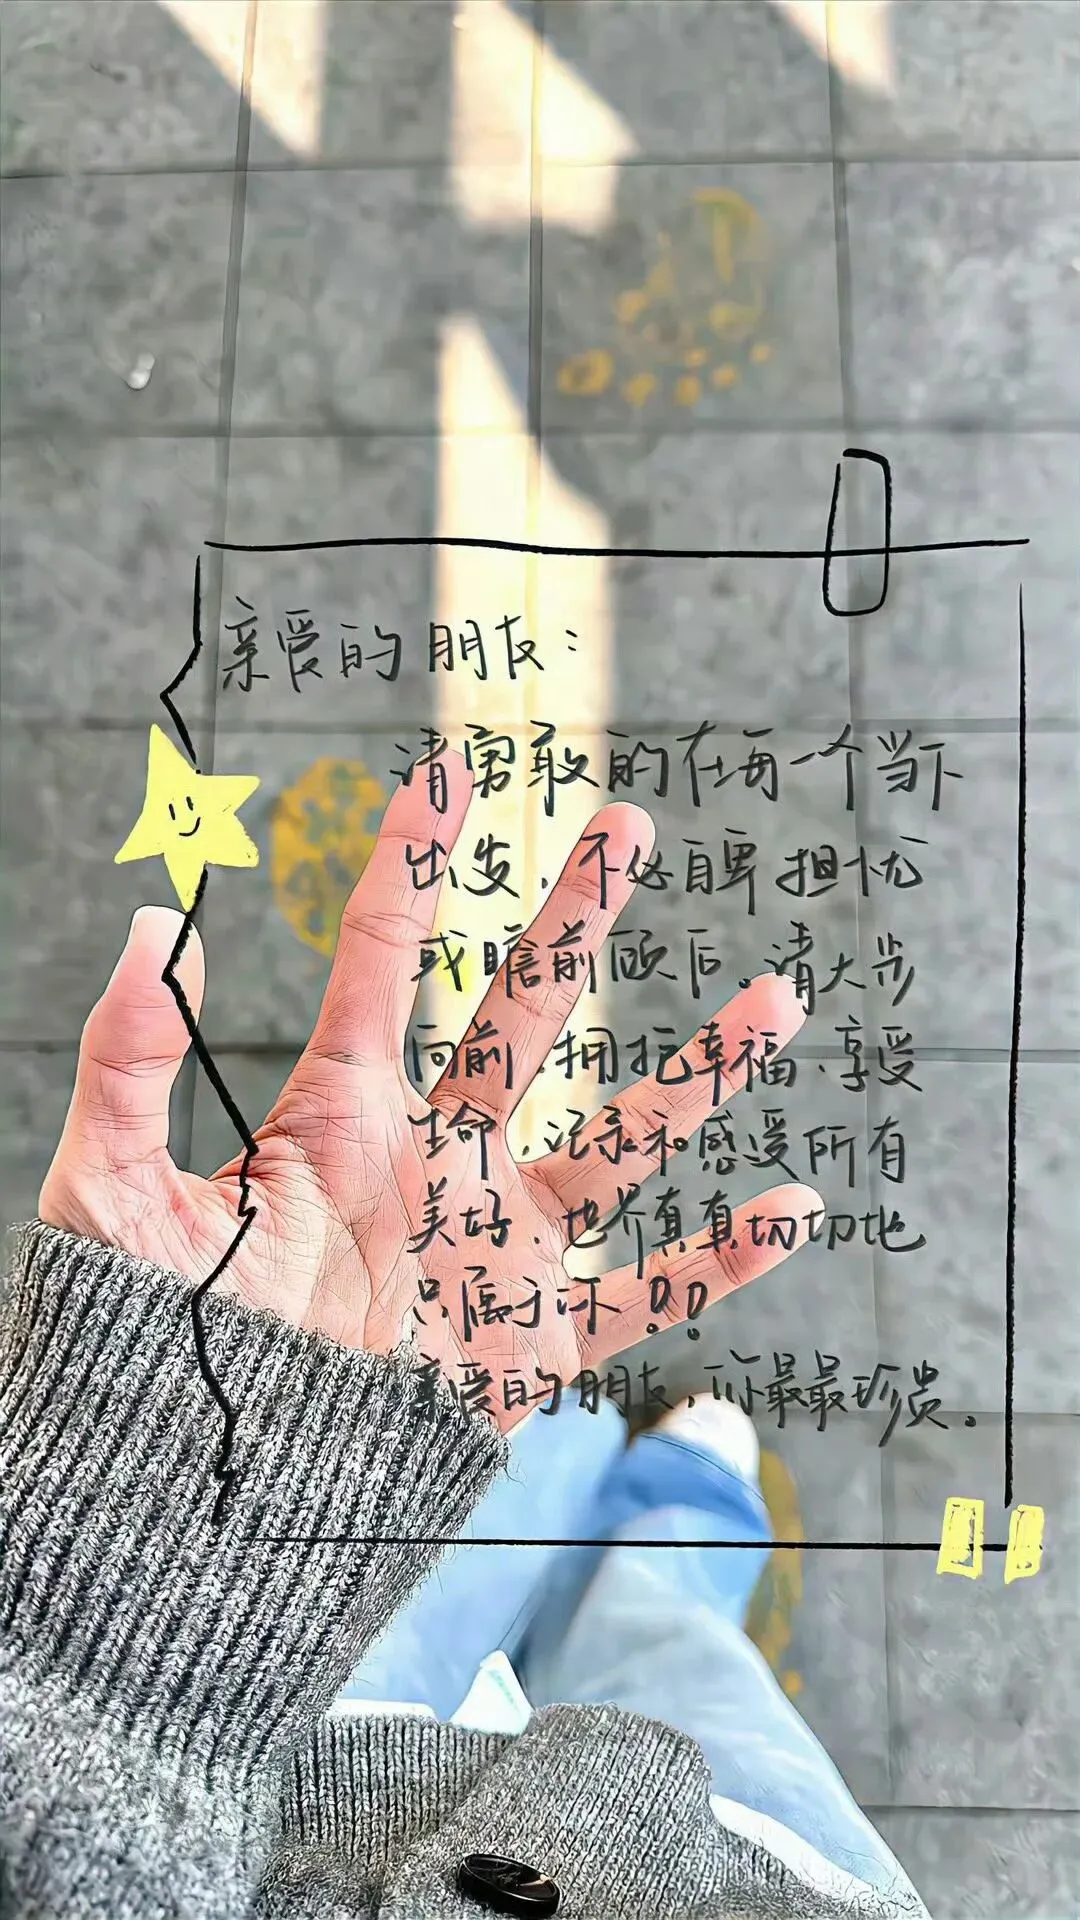 亲爱的朋友：
请勇敢的在每一个当下
出发，不必自卑担忧
或瞻前顾后。请大步
向前，拥抱幸福，享受
生命，记录和感受所有
美好，世界真真切切地
只属于你！！
亲爱的朋友，你最最珍贵。